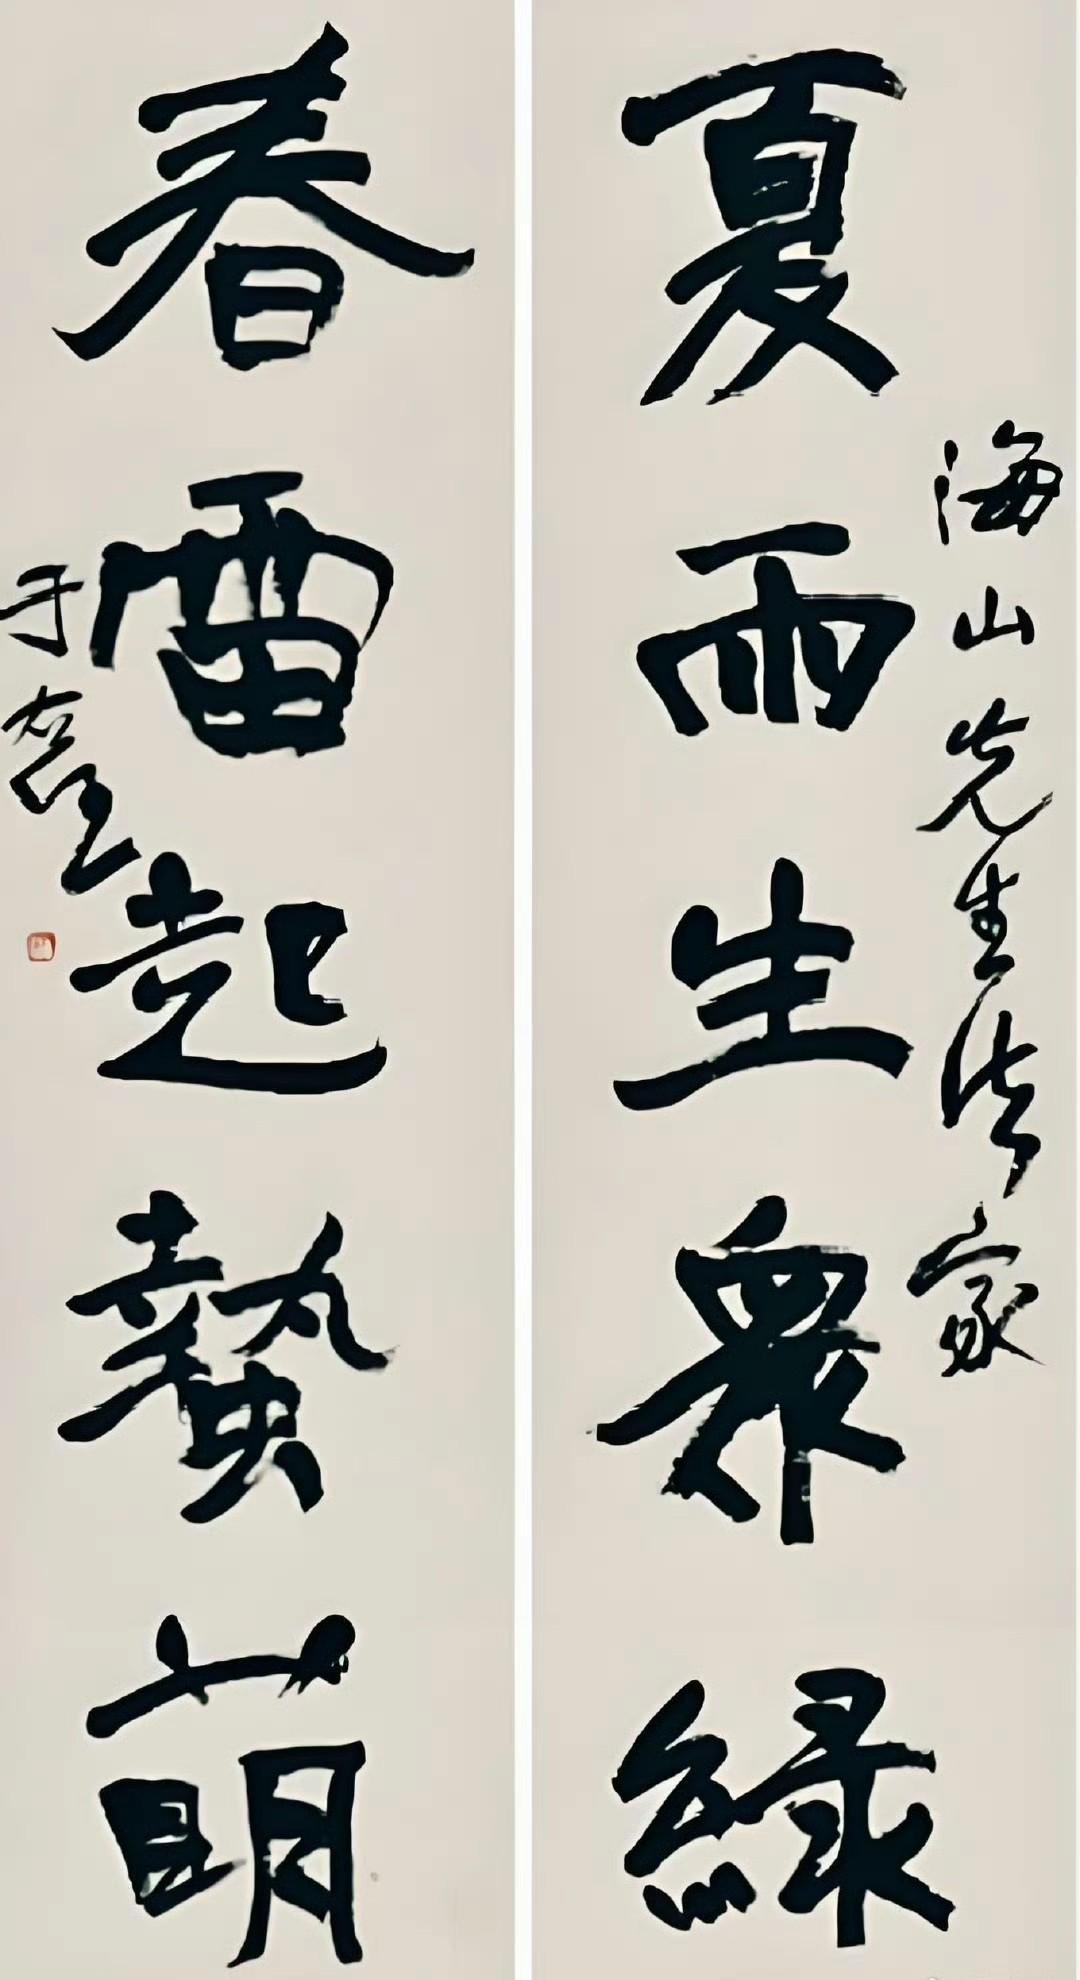 海山先生法家
夏雨生衆綠
春雷起蟄萌
于右任